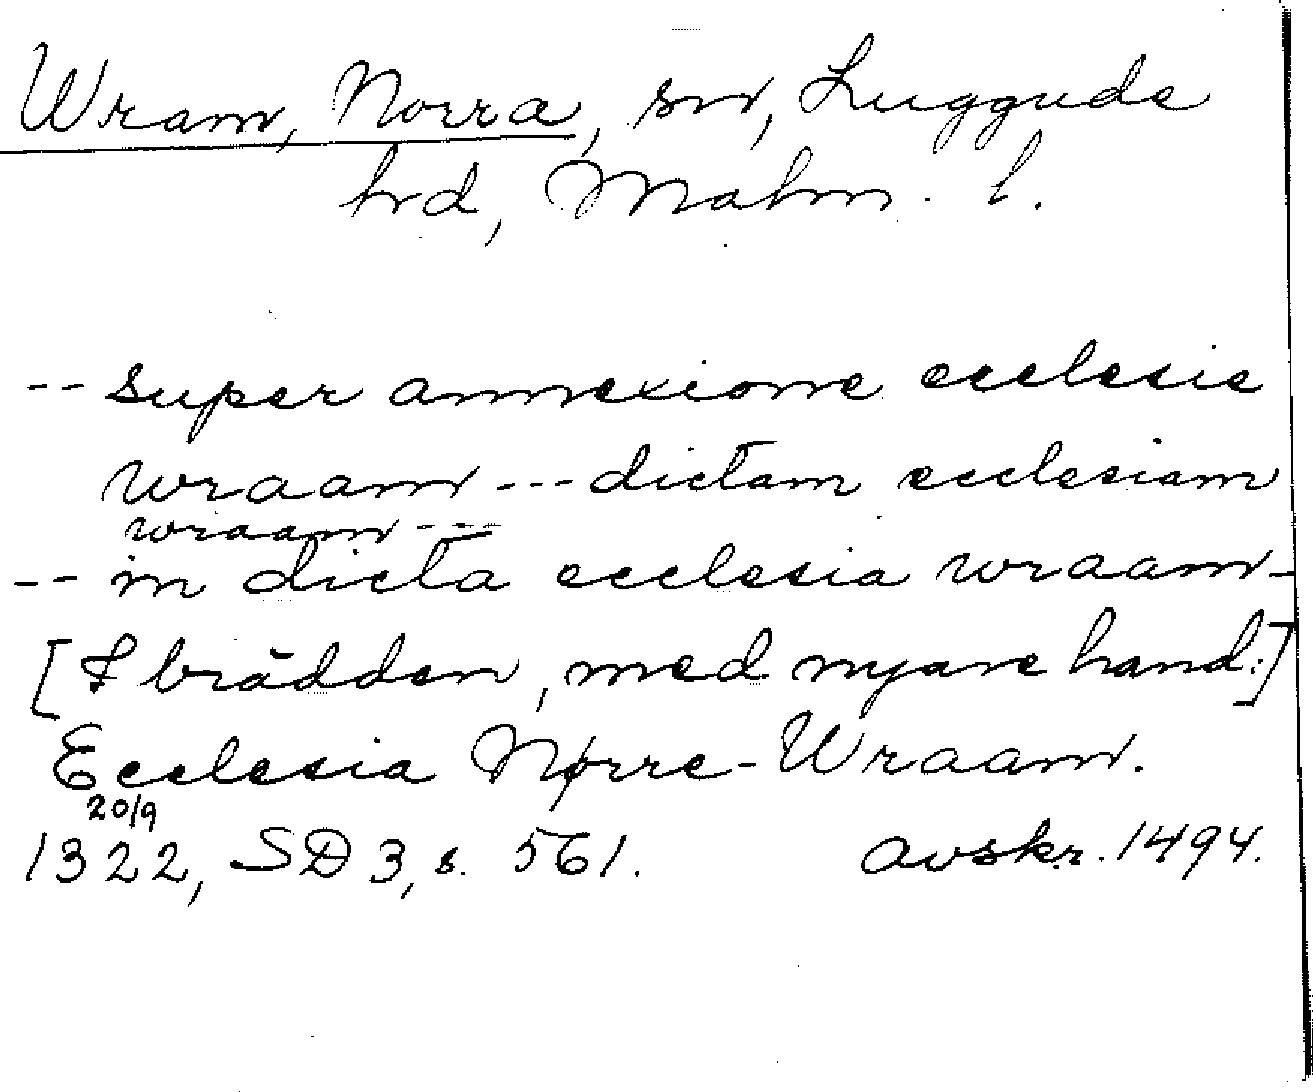 Wram, Norra, sn, Luggude
hd, Malm. l.
-- super annexione ecclesie
wraam --- dictam ecclesiam
wraam ---
-- in dicta ecclesia wraam -
[I brädden, med nyare hand:]
Ecclesia Nørre-Wraam.
20/9
1322, SD 3, s. 561. avskr. 1494.